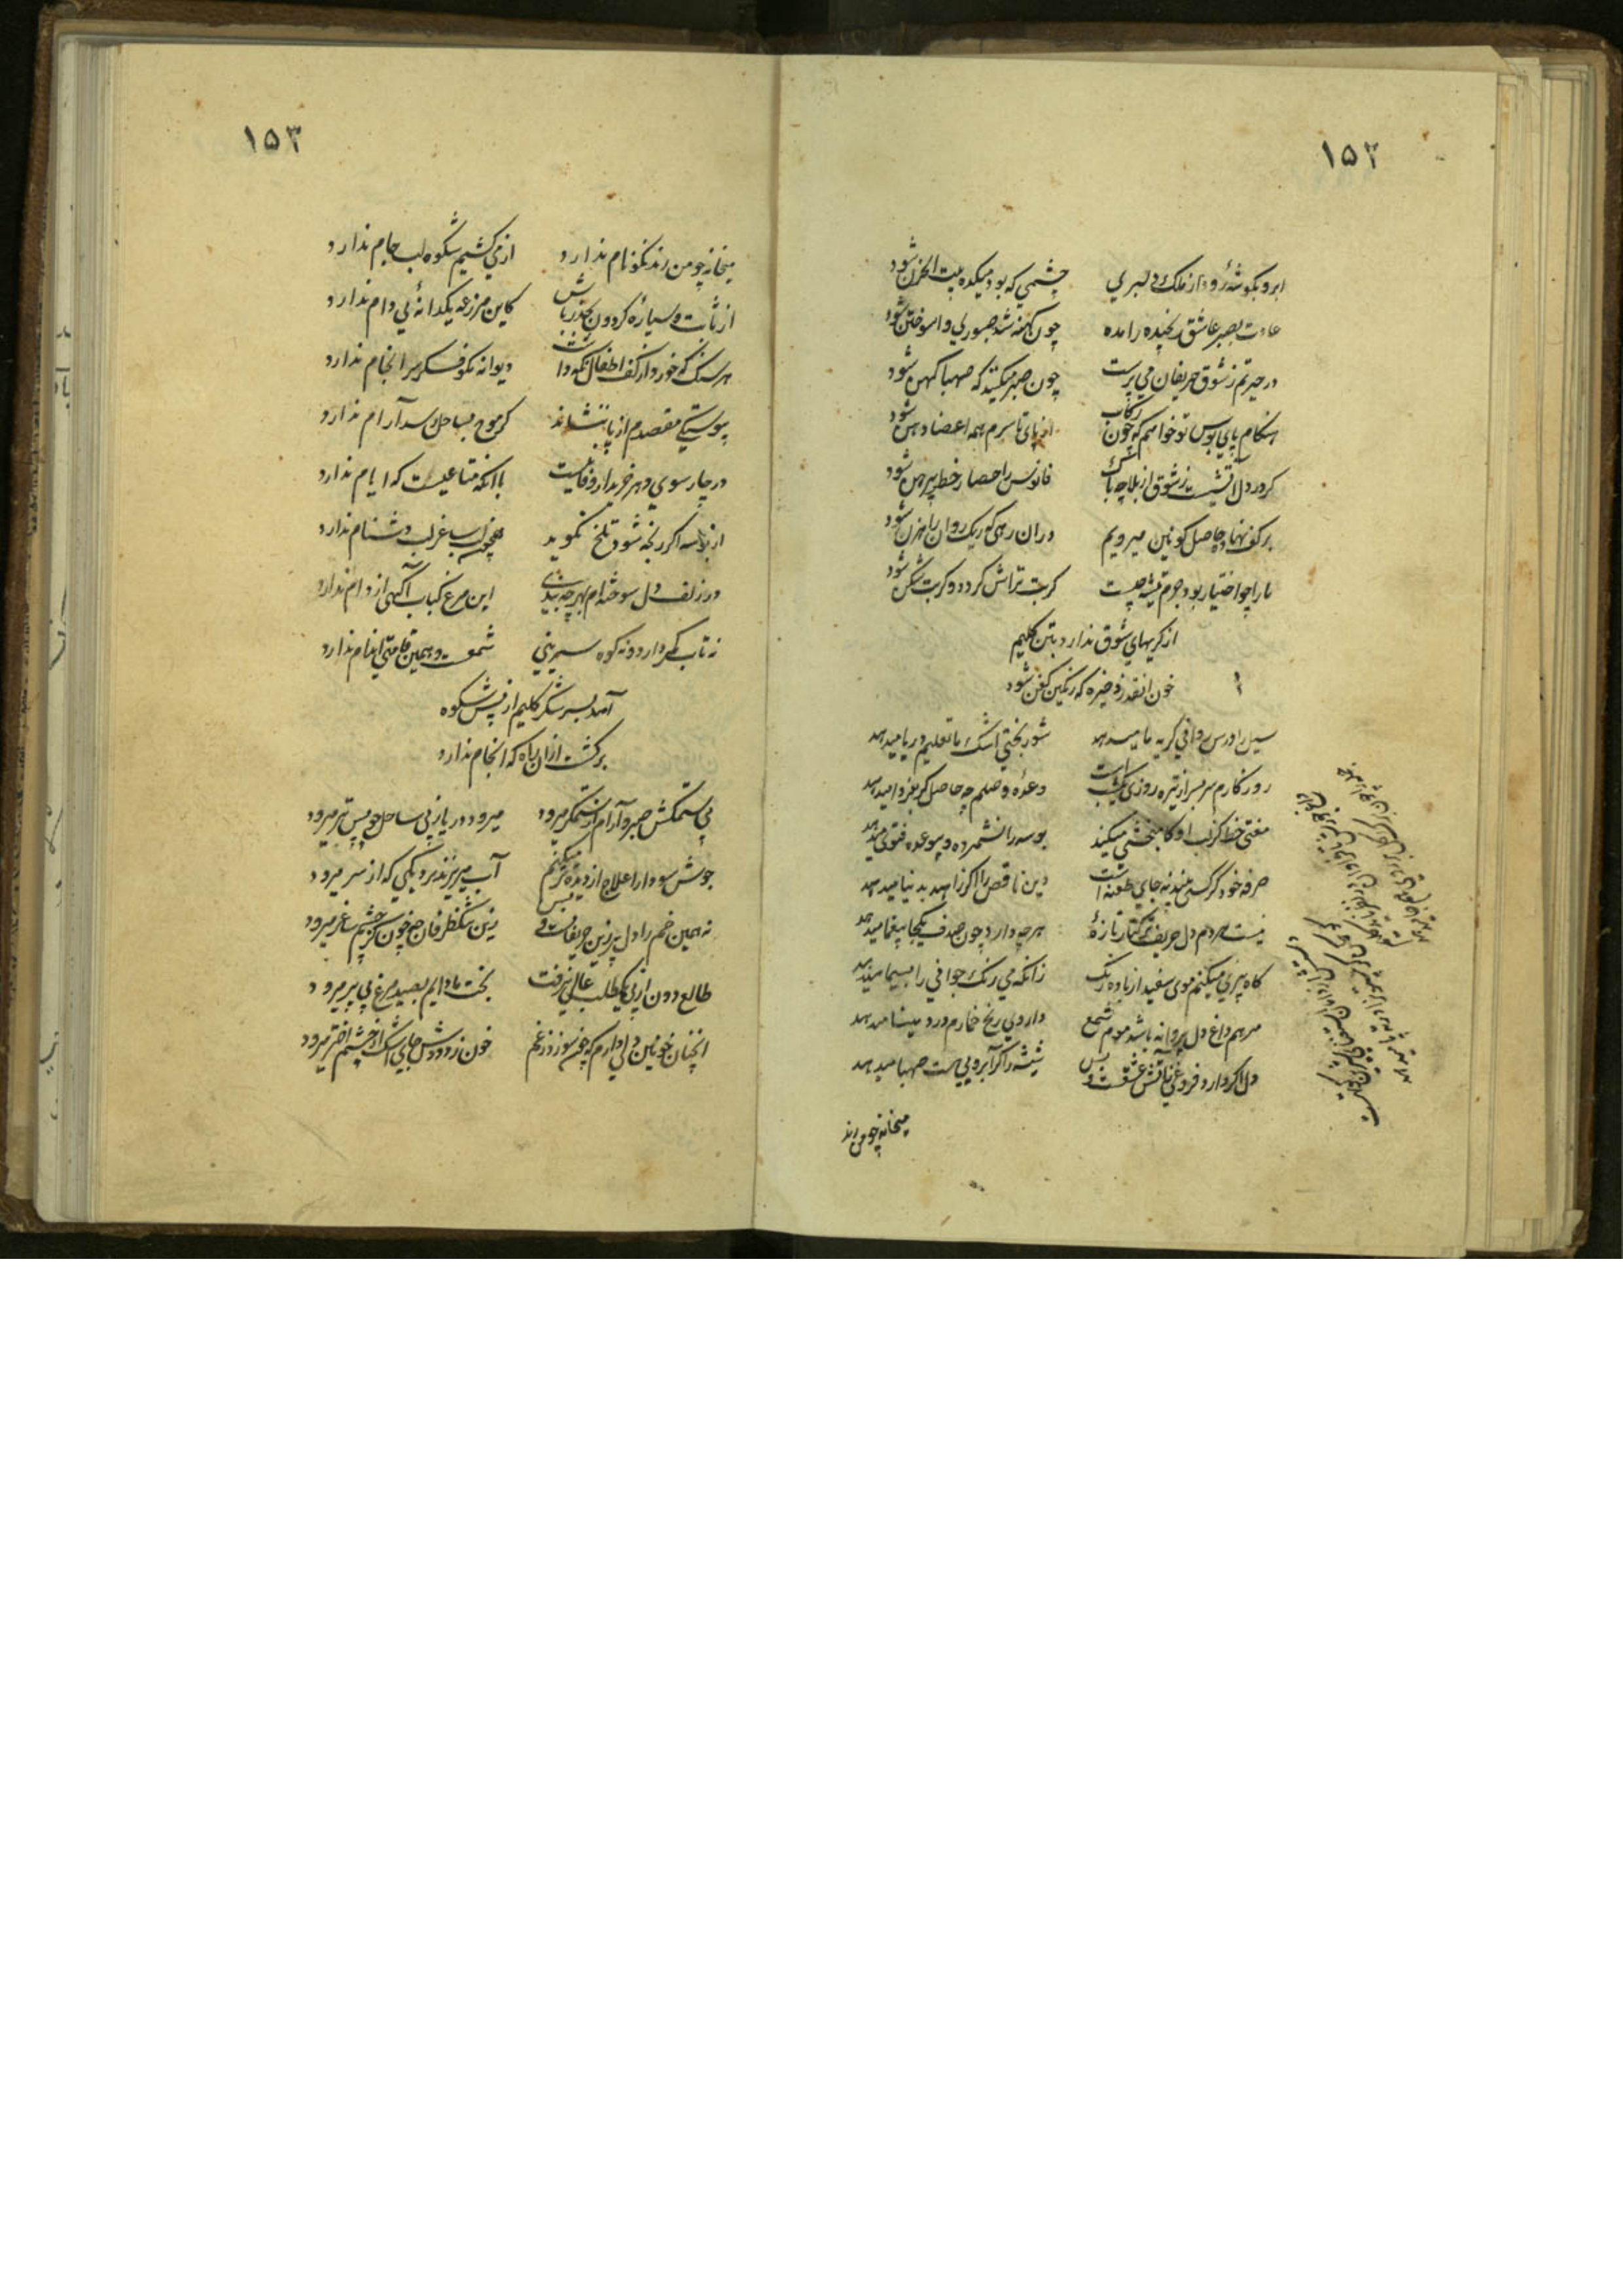 ۱۵۲
ابرو بگوشه رود از ملک دلبري چشمي که بود میکده بیت الحزن شود
عادت بصبر عاشق رنجیده را مده چون کهنه شد صبوري واسوختن شود
در حیرتم ز شوق حریفان مي پرست چون صبر میکنند که صهبا کهن شود
هنگام پاي بوس تو خواهم که چون رکاب از پاي تا سرم همه اعضا دهن شود
کر در دل آتشیست ز شوق از بلا چه باک فانوس را حصار خطر پیرهن شود
بر کف نهاده حاصل کونین میرویم در ان رهي که ریک روان راهزن شود
ما را چو اختیار بود جرم تیشه چیست کر بت تراش کردد و کر بت شکن شود
از کریهاي شوق ندارد بتن کلیم
خون انقدر ذخیره که رنکین کفن شود
سیل را درس رواني کریه ما میدهد شور بختي اشک ما تعلیم دریا میدهد
روزکارم سر بسر از تیره روزي یک شب است وعده وصلم چه حاصل کر بفردا میدهد
مفتي خط کز لب او کامبخشي میکند بوسه را نشمرده و بوعده فتوي میدهد
صرفه خود کر کسي بیند نه جاي طعنه است دین ناقص را اکر زاهد بدنیا میدهد
نیست مردم دل حریف ترکتاز تازه هر چه دارد چون صدف یکجا بیغما میدهد
کاه پیري میکنم موي سفید از باده رنک زانکه مي رنک جواني را بسیما میدهد
مرهم داغ دل پروانه باشد موم شمع داروي رنج خمارم درد مینا میدهد
دل اکر دارد فروغي ز آتش عشقست و بس شیشه را کر آبرویي هست صهبا میدهد
میخانه چو من رند
۱۵۳
میخانه چو من رند نکونام ندارد از مي کشیم شکوه لب جام ندارد
از ثابت و سیاره کردون بحذر باش کاین مزرعه یکدانه بي دام ندارد
هر سنک که خورد از کف اطفال نکه داشت دیوانه نکو فکر سرانجام ندارد
پیوستکي مقصدم از پا ننشاند کر موج بساحل رسد آرام ندارد
در چارسوي دهر خریدار وفا نیست با آنکه متاعیست که ایام ندارد
از بوسه اکر رنجه شود تلخ نکوید همچون لب ساغر لب دشنام ندارد
در زلف دل سوخته ام بهر چه بندي این مرغ کباب آکهي از دام ندارد
نه تاب کمر دارد و نه کوه سریني شمعست و همین قامتي اندام ندارد
آمد بسر شکر کلیم از پیش شکوه
برکشت ازان راه که انجام ندارد
بي ستمکش صبر و آرام از ستمکر میرود میرود دریا ز پي ساحل چو پستر میرود
جوش سودا را علاج از دیده تر میکنم آب میریزند بر دیکي که از سر میرود
نه همین خم را دل پر زین حریفانست و بس زین تنک ظرفان چه خون کز چشم ساغر میرود
طالع دون از پي یک مطلب عالي نرفت بخت ما دایم بصید مرغ بي پر میرود
انچنان خو با من دلي دارم که چون سوزد ز غم خون ز دودش جاي اشک از چشم اختر میرود